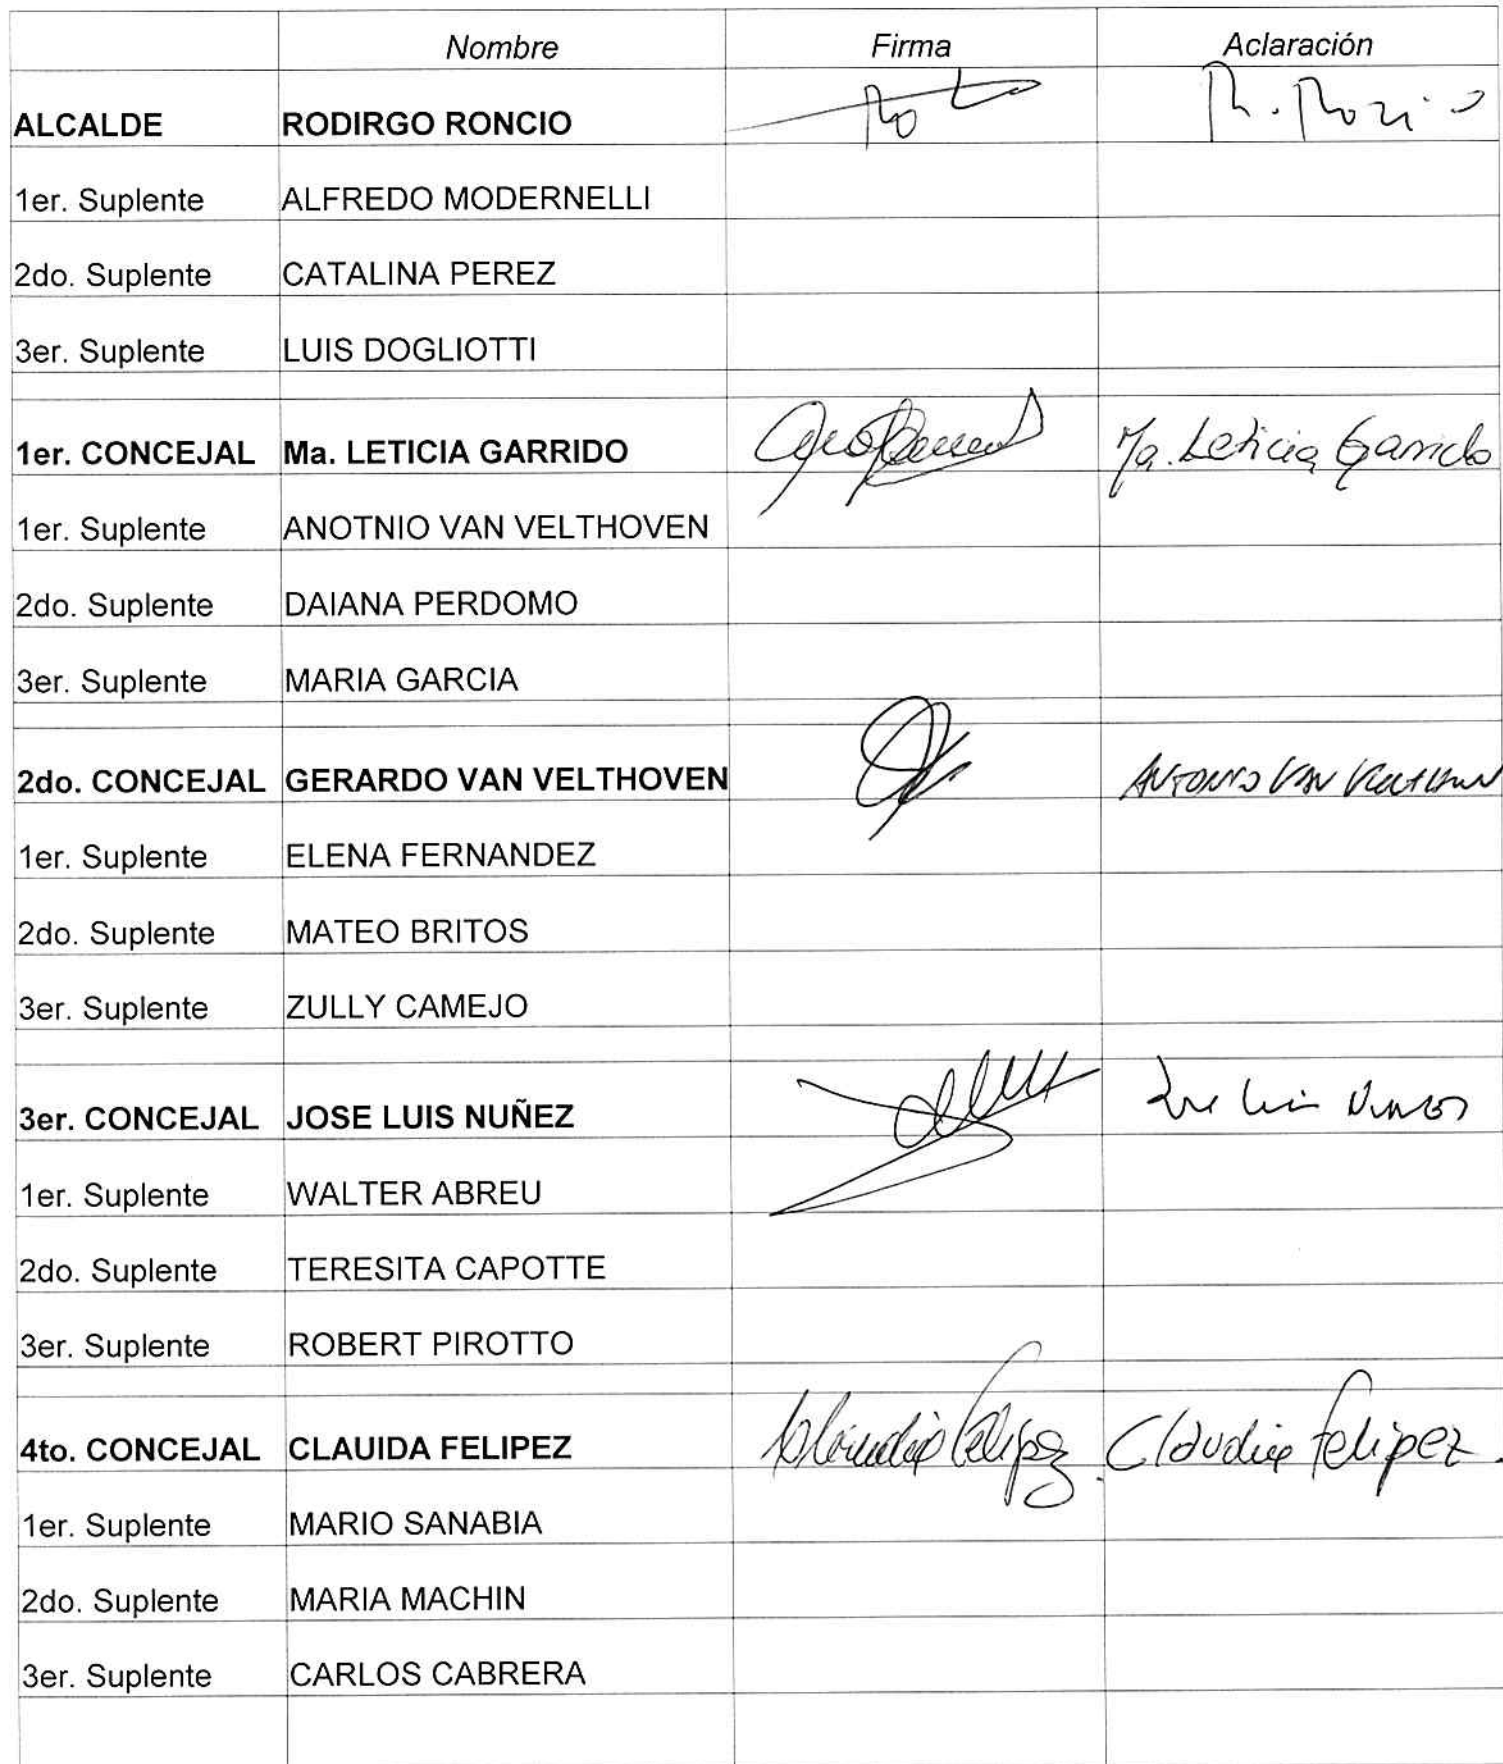 Nombre Firma Aclaración
ALCALDE RODIRGO RONCIO
1er. Suplente ALFREDO MODERNELLI
2do. Suplente CATALINA PEREZ
3er. Suplente LUIS DOGLIOTTI
1er. CONCEJAL Ma. LETICIA GARRIDO Ma. Leticia Garrido
1er. Suplente ANOTNIO VAN VELTHOVEN
2do. Suplente DAIANA PERDOMO
3er. Suplente MARIA GARCIA
2do. CONCEJAL GERARDO VAN VELTHOVEN ANTONIO VAN VELTHOVEN
1er. Suplente ELENA FERNANDEZ
2do. Suplente MATEO BRITOS
3er. Suplente ZULLY CAMEJO
3er. CONCEJAL JOSE LUIS NUÑEZ
1er. Suplente WALTER ABREU
2do. Suplente TERESITA CAPOTTE
3er. Suplente ROBERT PIROTTO
4to. CONCEJAL CLAUIDA FELIPEZ Claudia Felipez. Claudia Felipez.
1er. Suplente MARIO SANABIA
2do. Suplente MARIA MACHIN
3er. Suplente CARLOS CABRERA